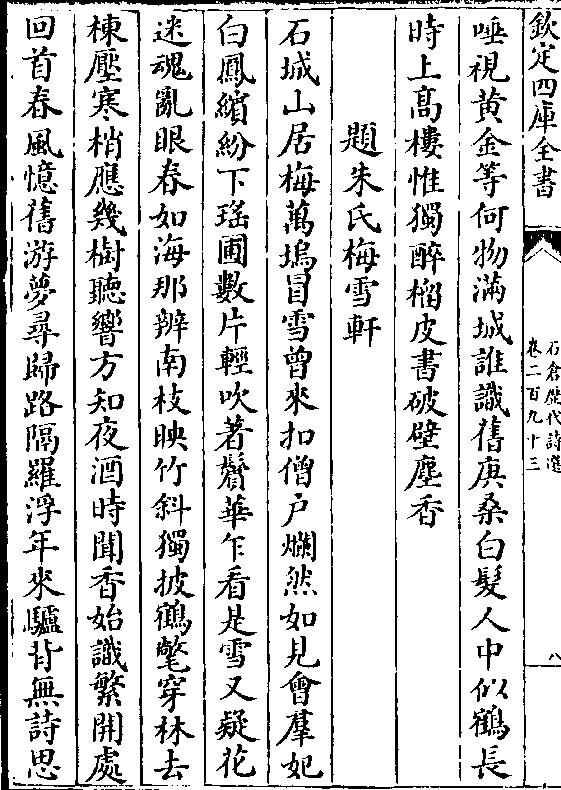 欽定四庫全書
石倉歷代詩選
卷二百九十三
八
唾視黃金等何物滿城誰識舊庚桑白髮人中似鶴長
時上高樓惟獨醉榴皮書破壁塵香
題朱氏梅雪軒
石城山居梅萬塢冒雪曾來扣僧户爛然如見會羣妃
白鳳繽紛下瑤圃數片輕吹著鬢華乍看是雪又疑花
迷魂亂眼春如海那辨南枝映竹斜獨披鶴氅穿林去
棟壓寒梢應幾樹聽響方知夜酒時聞香始識繁開處
回首春風憶舊游夢尋歸路隔羅浮年來驢背無詩思